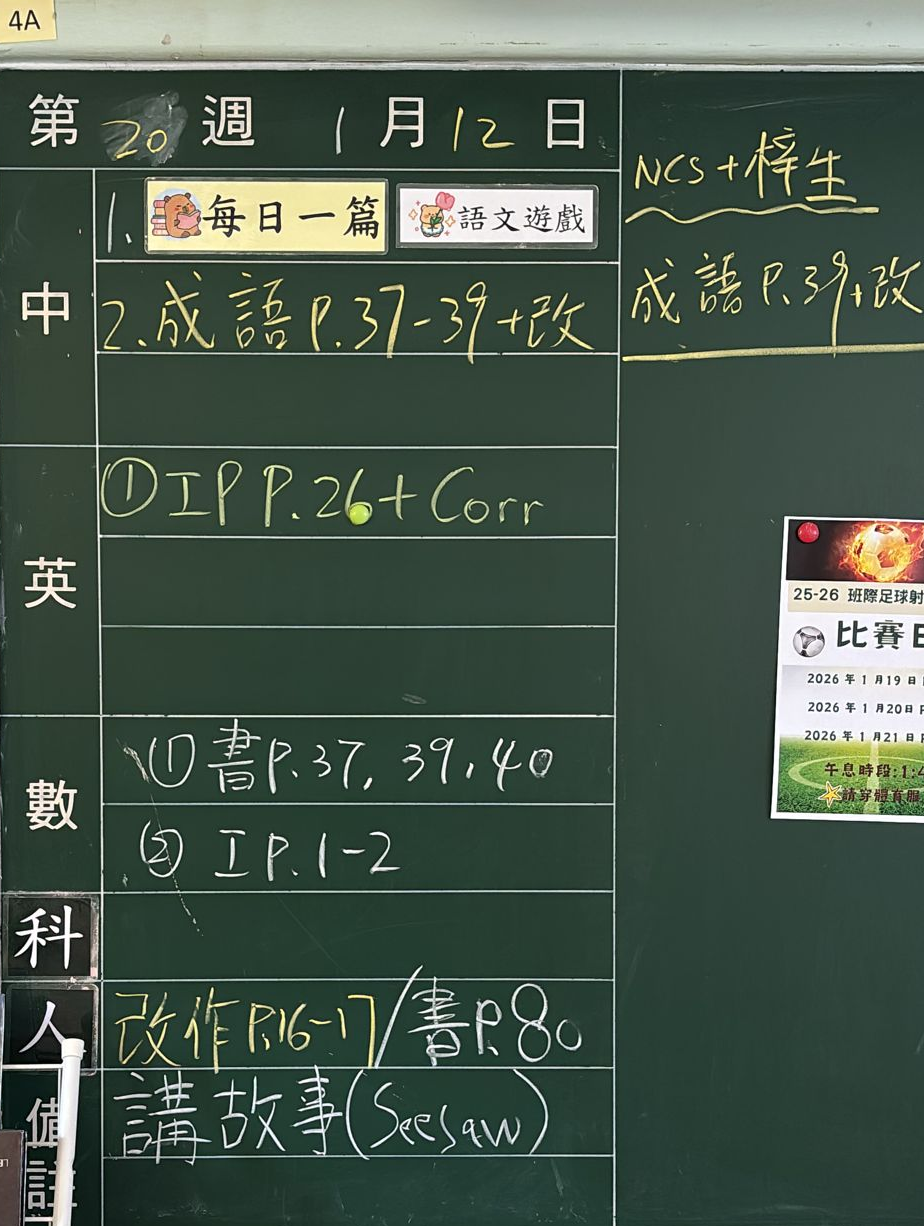 4A
第 20 週 1 月 12 日
中
1. 每日一篇 語文遊戲
2. 成語 P.37-39+改
英
① IP P.26+Corr
數
① 書P.37, 39, 40
② IP.1-2
科
人
改作P.16-17/書P.80
備註
講故事(Seesaw)
NCS+梓生
成語 P.39+改
25-26 班際足球射
比賽日
2026 年 1 月19 日
2026 年 1 月20日
2026 年 1 月21 日
午息時段:1:4
請穿體育服